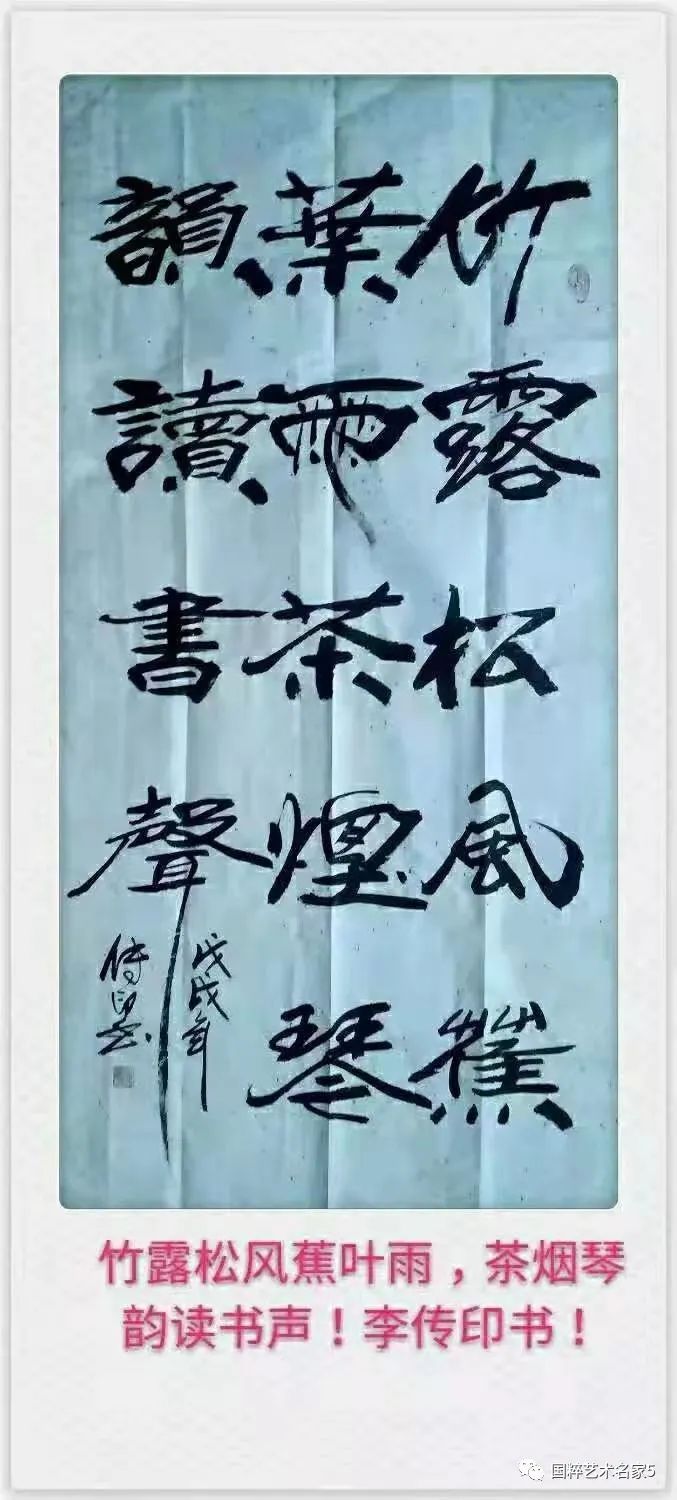 竹露松風蕉
葉雨茶煙琴
韻讀書聲
戊戌年
傳印書
竹露松风蕉叶雨，茶烟琴
韵读书声！李传印书！
国粹艺术名家5